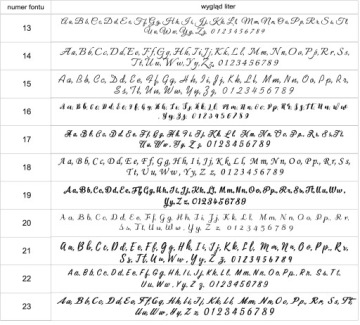 numer fontu wygląd liter
13 Aa Bb Cc Dd Ee Ff Gg Hh Ii Jj Kk Ll Mm Nn Oo Pp Rr Ss Tt
Uu Ww Yy Zz 0 1 2 3 4 5 6 7 8 9
14 Aa, Bb, Cc, Dd, Ee, Ff, Gg, Hh, Ii, Jj, Kk, Ll, Mm, Nn, Oo, Pp, Rr, Ss,
Tt, Uu, Ww, Yy, Zz, 0 1 2 3 4 5 6 7 8 9
15 Aa, Bb, Cc, Dd, Ee, Ff, Gg, Hh, Ii, Jj, Kk, Ll, Mm, Nn, Oo, Pp, Rr,
Ss, Tt, Uu, Ww, Yy, Zz, 0 1 2 3 4 5 6 7 8 9
16 Aa, Bb, Cc, Dd, Ee, Ff, Gg, Hh, Ii, Jj, Kk, Ll, Mm, Nn, Oo, Pp, Rr, Ss, Tt, Uu, Ww
, Yy, Zz, 0 1 2 3 4 5 6 7 8 9
17 Aa, Bb, Cc, Dd, Ee, Ff, Gg, Hh, Ii, Jj, Kk, Ll, Mm, Nn, Oo, Pp, Rr, Ss, Tt,
Uu, Ww, Yy, Zz, 0 1 2 3 4 5 6 7 8 9
18 Aa, Bb, Cc, Dd, Ee, Ff, Gg, Hh, Ii, Jj, Kk, Ll, Mm, Nn, Oo, Pp, Rr, Ss,
Tt, Uu, Ww, Yy, Zz, 0 1 2 3 4 5 6 7 8 9
19 Aa, Bb, Cc, Dd, Ee, Ff, Gg, Hh, Ii, Jj, Kk, Ll, Mm, Nn, Oo, Pp, Rr, Ss, Tt, Uu, Ww,
Yy, Zz, 0 1 2 3 4 5 6 7 8 9
20 Aa, Bb, Cc, Dd, Ee, Ff, Gg, Hh, Ii, Jj, Kk, Ll, Mm, Nn, Oo, Pp, Rr,
Ss, Tt, Uu, Ww, Yy, Zz, 0 1 2 3 4 5 6 7 8 9
21 Aa, Bb, Cc, Dd, Ee, Ff, Gg, Hh, Ii, Jj, Kk, Ll, Mm, Nn, Oo, Pp, Rr,
Ss, Tt, Uu, Ww, Yy, Zz, 0 1 2 3 4 5 6 7 8 9
22 Aa, Bb, Cc, Dd, Ee, Ff, Gg, Hh, Ii, Jj, Kk, Ll, Mm, Nn, Oo, Pp, Rr, Ss, Tt,
Uu, Ww, Yy, Zz, 0 1 2 3 4 5 6 7 8 9
23 Aa, Bb, Cc, Dd, Ee, Ff, Gg, Hh, Ii, Jj, Kk, Ll, Mm, Nn, Oo, Pp, Rr, Ss, Tt,
Uu, Ww, Yy, Zz 0 1 2 3 4 5 6 7 8 9